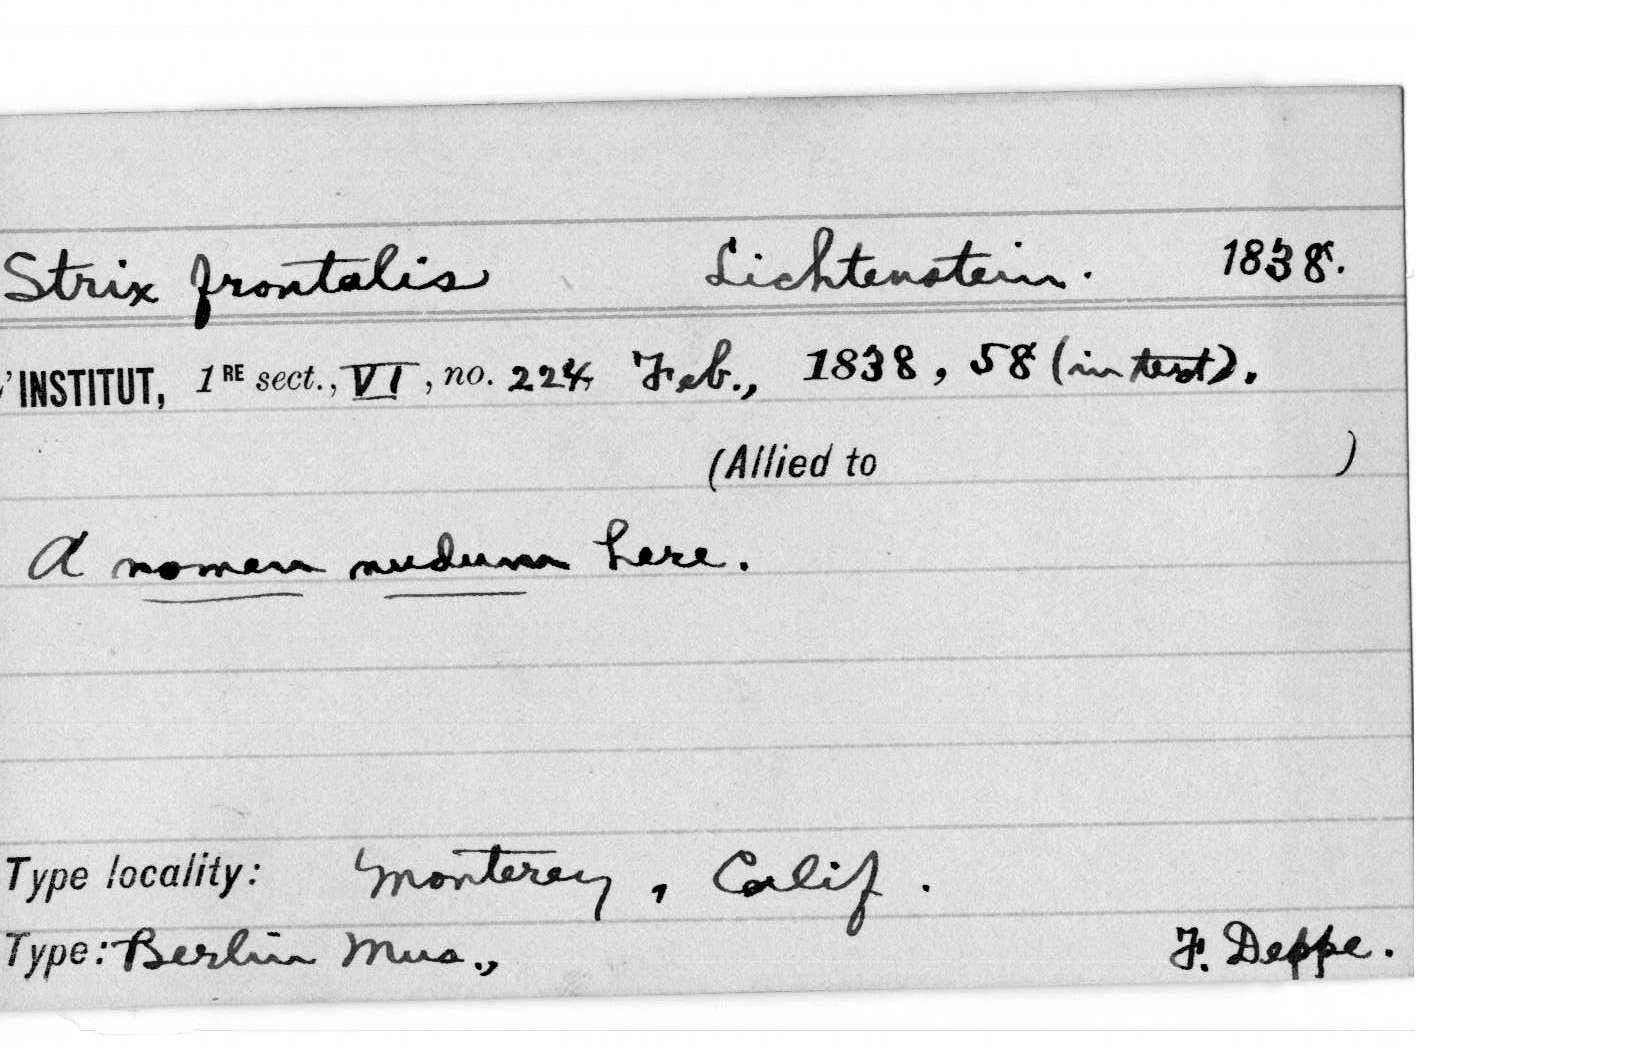 Strix frontalis Lichtenstein. 1838.
'INSTITUT, 1RE sect., VI, no. 224, Feb., 1838, 58 (in text).
(Allied to )
A nomen nudum here.
Type locality: Monterey, Calif.
Type: Berlin Mus., F. Deppe.